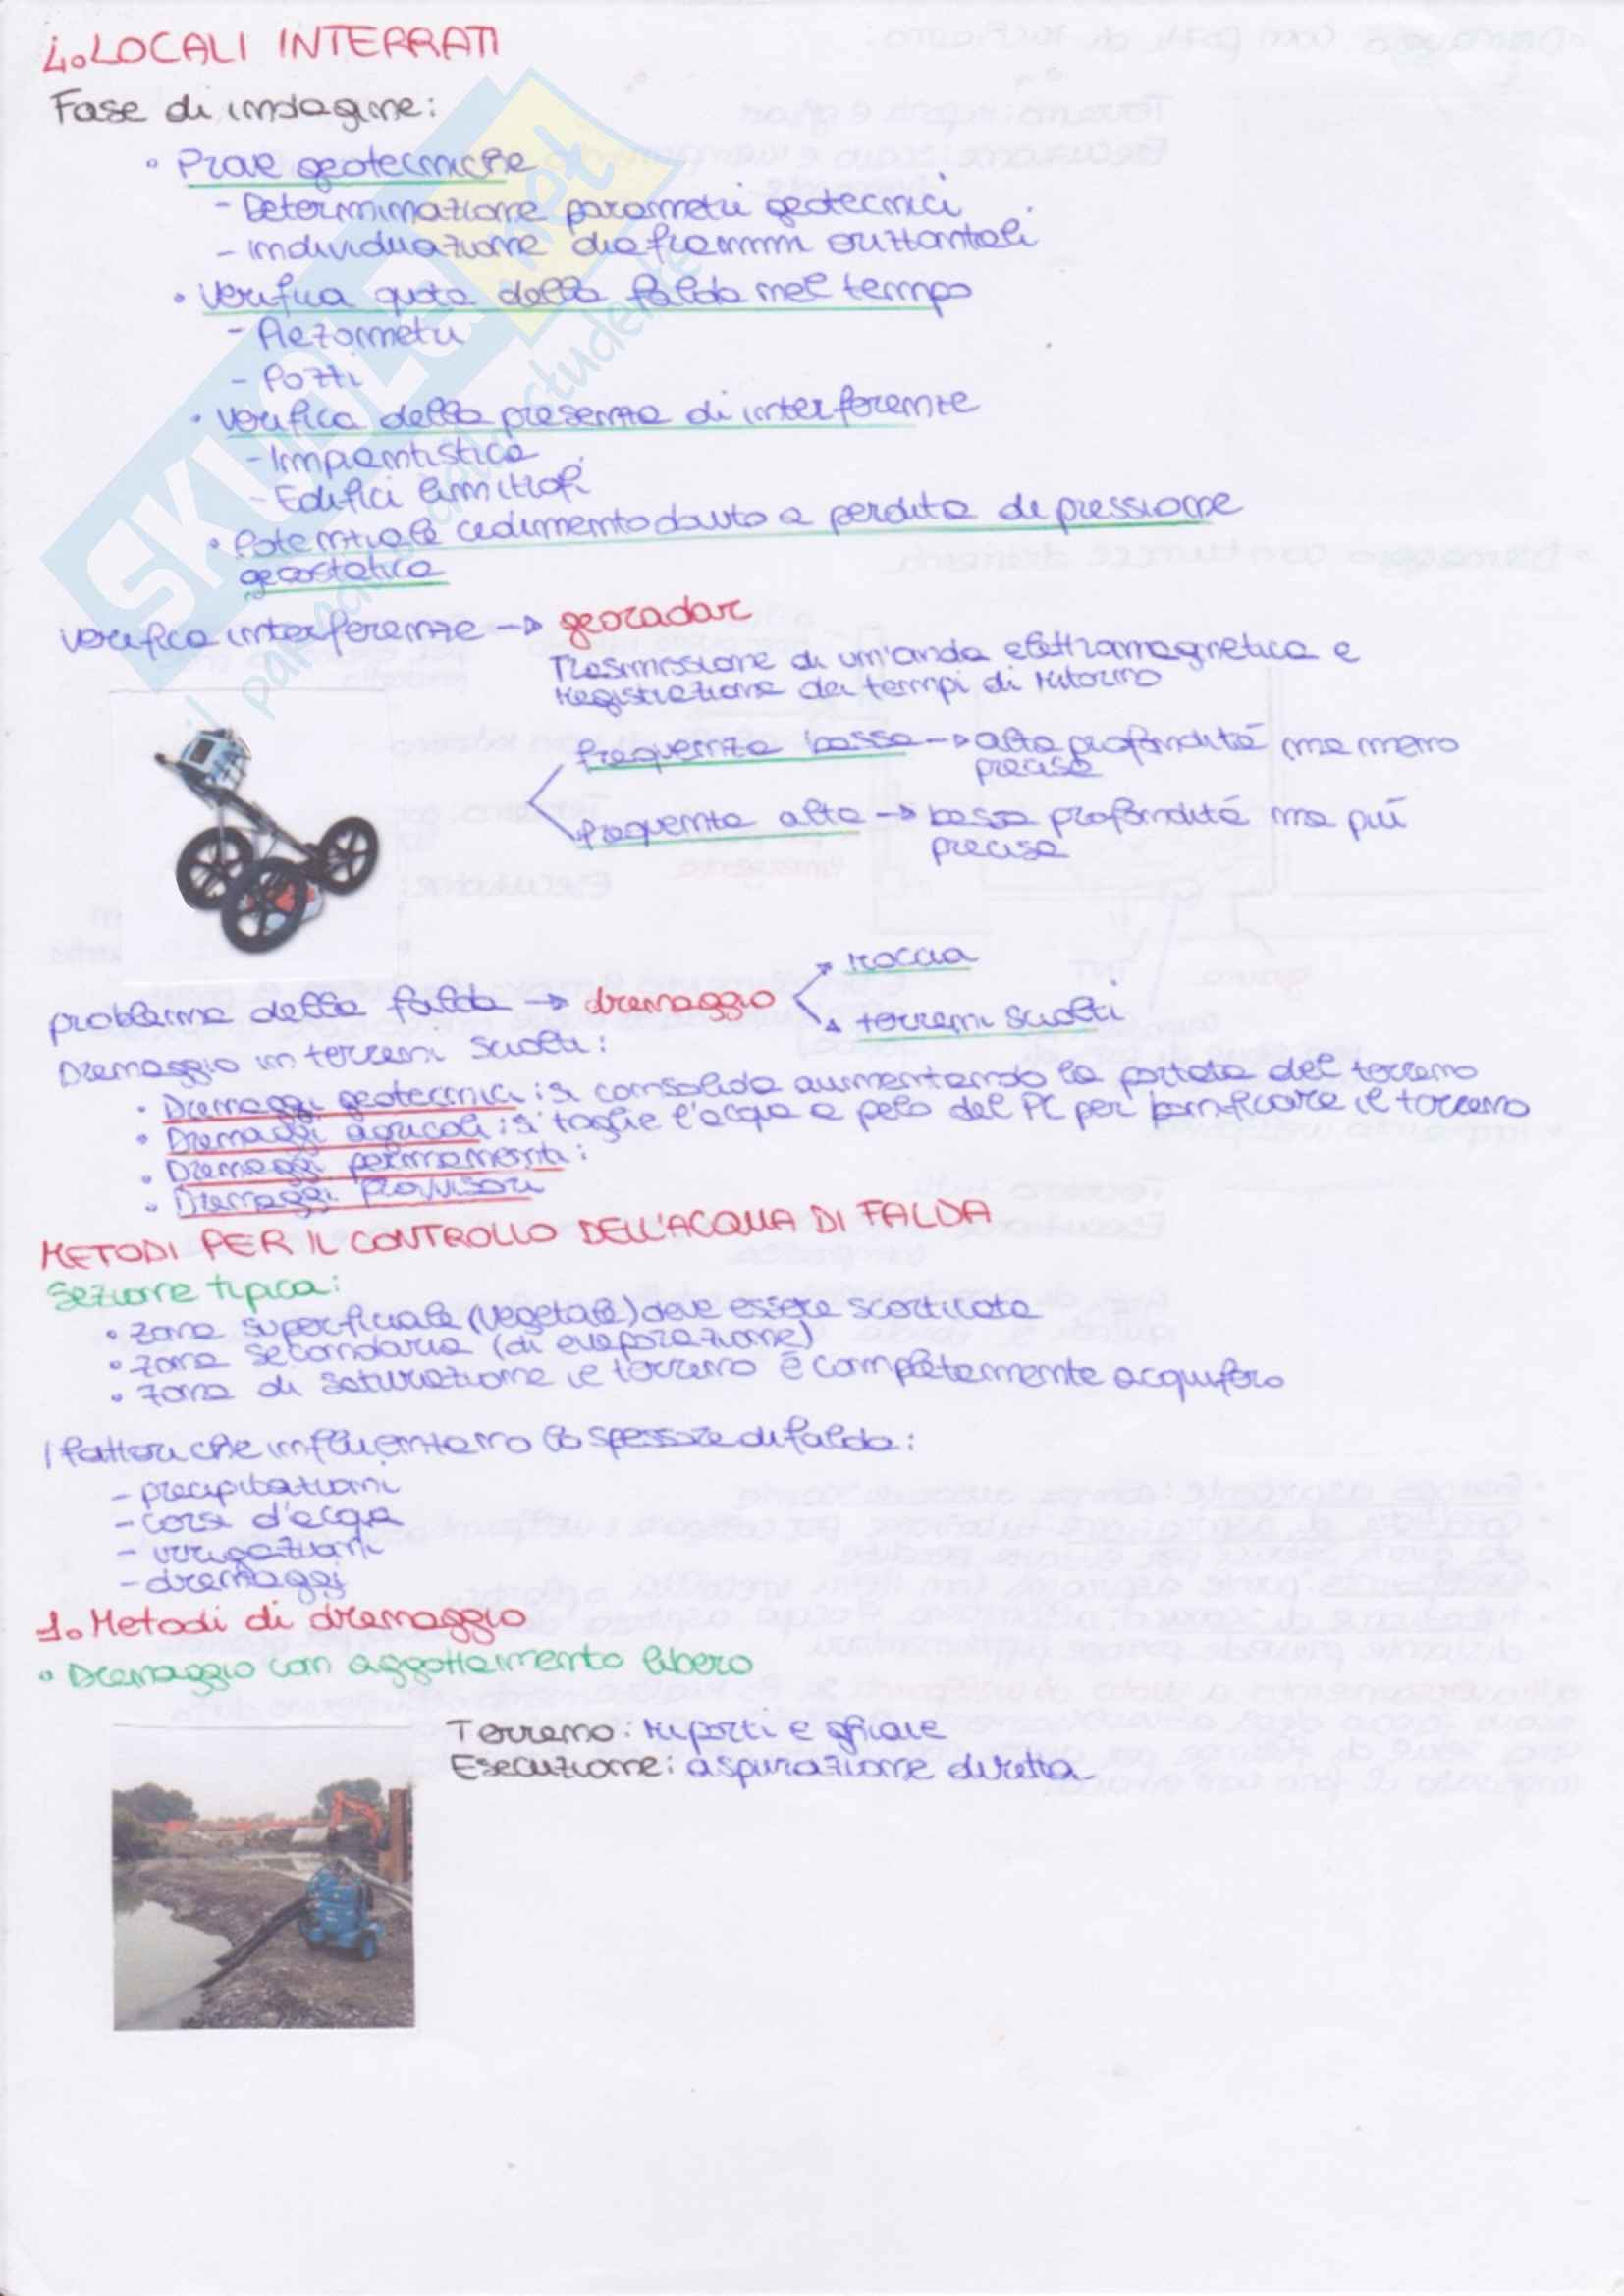 4. LOCALI INTERRATI
Fase di indagine:
• Prove geotecniche
- Determinazione parametri geotecnici
- individuazione diaframmi orizzontali
• Verifica quota della falda nel tempo
- Piezometri
- Pozzi
• Verifica della presenza di interferenze
- Impiantistica
- Edifici limitrofi
• Potenziale cedimento dovuto a perdita di pressione
geostatica
verifica interferenze → georadar
Trasmissione di un'onda elettromagnetica e
registrazione dei tempi di ritorno
frequenza bassa → alta profondità ma meno
precisa
frequenza alta → bassa profondità ma più
precisa
problema della falda → drenaggio
roccia
terreni sciolti
Drenaggio in terreni sciolti:
• Drenaggi geotecnici: si consolida aumentando la portata del terreno
• Drenaggi agricoli: si toglie l'acqua a pelo del PC per bonificare il terreno
• Drenaggi permanenti:
• Drenaggi provvisori
METODI PER IL CONTROLLO DELL'ACQUA DI FALDA
Sezione tipica:
• zona superficiale (vegetale) deve essere scorticata
• zona secondaria (di evaporazione)
• zona di saturazione il terreno è completamente acquifero
I fattori che influenzano lo spessore di falda:
- precipitazioni
- corsi d'acqua
- irrigazioni
- drenaggi
1. Metodi di drenaggio
• Drenaggio con aggottamento libero
Terreno: riporti e ghiaie
Esecuzione: aspirazione diretta
SKUOLA.net
il paradiso dello studente